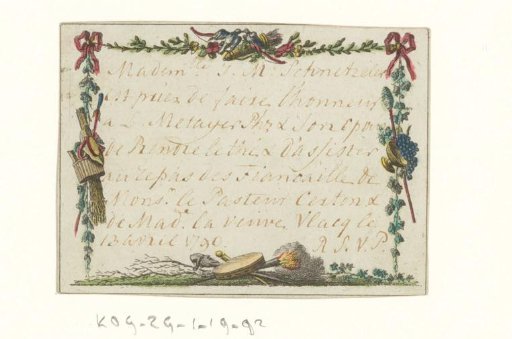 Madem.lle J. M. Schnetzler
est priée de faire l'honneur
a S. Metayer Phz & Son Epouse
de Prendre le thé & d'assister
au repas des fiancaille de
Mons.r le Pasteur Certon &
de Mad.e la veuve Vlacq le
13 avril 1790. R. S. V. P.
KOG-ZG-1-19-92